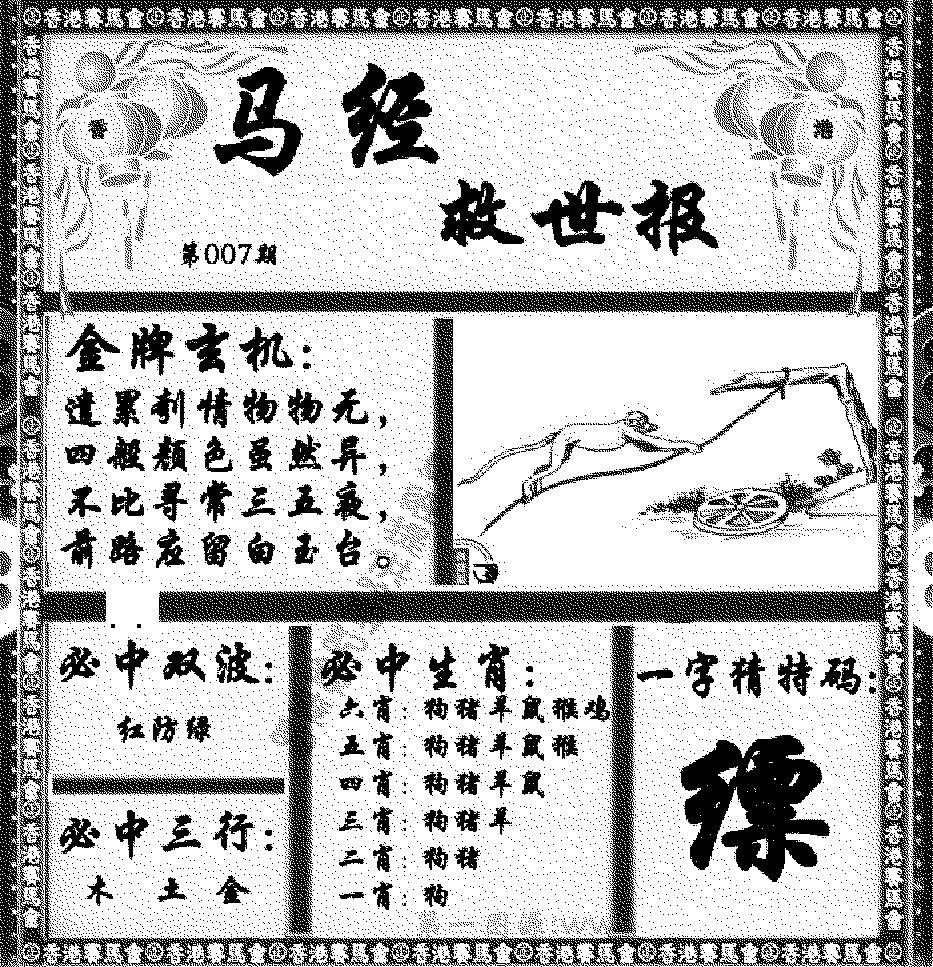 香港賽馬會 香港賽馬會 香港賽馬會 香港賽馬會 香港賽馬會 香港賽馬會 香港賽馬會
香
港
马 经
救世报
第007期
金牌玄机:
遣累制情物物无,
四般颜色虽然异,
不比寻常三五夜,
前路应留白玉台。
必中双波:
红防绿
必中三行:
木 土 金
必中生肖:
六肖: 狗猪羊鼠猴鸡
五肖: 狗猪羊鼠猴
四肖: 狗猪羊鼠
三肖: 狗猪羊
二肖: 狗猪
一肖: 狗
一字猜特码:
缥
香港賽馬會 香港賽馬會 香港賽馬會 香港賽馬會 香港賽馬會 香港賽馬會 香港賽馬會